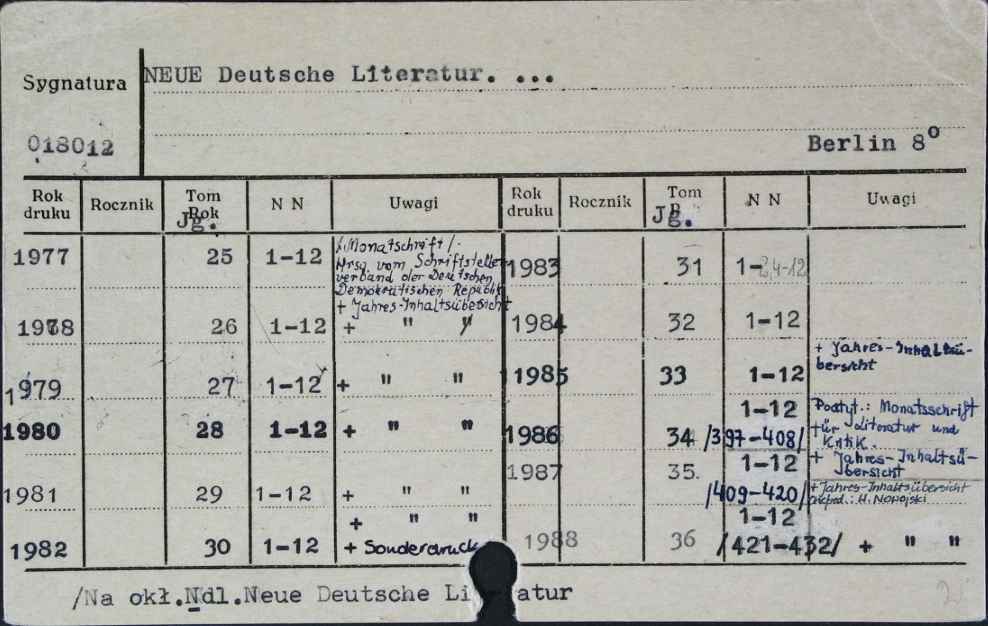 Sygnatura
NEUE Deutsche Literatur. ...
018012
Berlin 8º
Rok druku Rocznik Tom Rok Jg. N N Uwagi Rok druku Rocznik Tom R Jg. N N Uwagi
1977 25 1-12 /Monatschrift/.
Hrsg vom Schriftsteller
verband der Deutschen
Demokratischen Republik
+ Jahres-Inhaltsübersicht
1978 26 1-12 + " "
1979 27 1-12 + " "
1980 28 1-12 + " "
1981 29 1-12 + " "
+ " "
1982 30 1-12 + Sonderdruck
1983 31 1-2,4-12
1984 32 1-12
1985 33 1-12 + Jahres-Inhaltsü-
bersicht
1986 34 1-12 /397-408/ Podtyt.: Monatsschrift
für Literatur und
Kritik.
+ Jahres-Inhaltsü-
bersicht
1987 35. 1-12 /409-420/ + Jahres-Inhaltsübersicht
H. Nowojski
1988 36 1-12 /421-432/ + " "
/Na okł.Ndl.Neue Deutsche Li atur